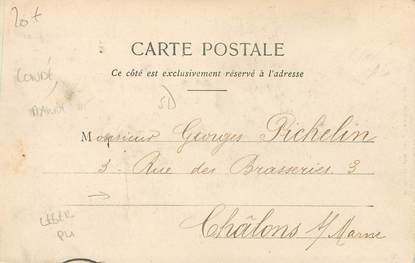 20+
CARTE POSTALE
Ce côté est exclusivement réservé à l'adresse
CONDÉ
Monsieur Georges Pichelin
3 - Rue des Brasseries. 3
LEGER
PLI
Châlons s/Marne